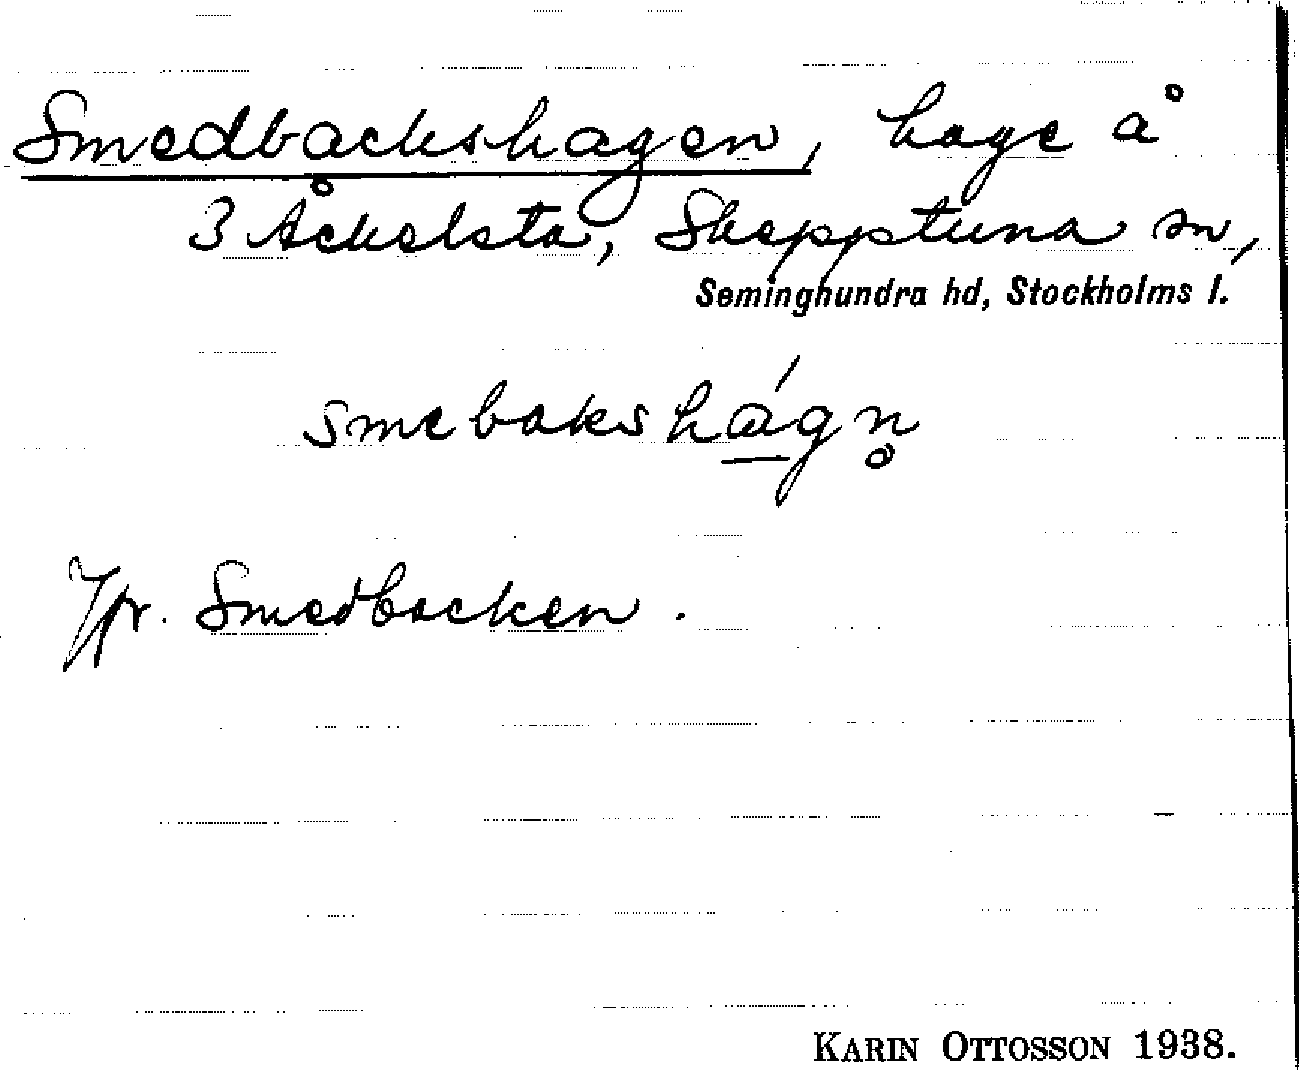 Smedbackshagen, hage å
3 Åckelsta, Skepptuna sn,
Seminghundra hd, Stockholms l.
smebakshága̱n̥
Jfr. Smedbacken.
KARIN OTTOSSON 1938.